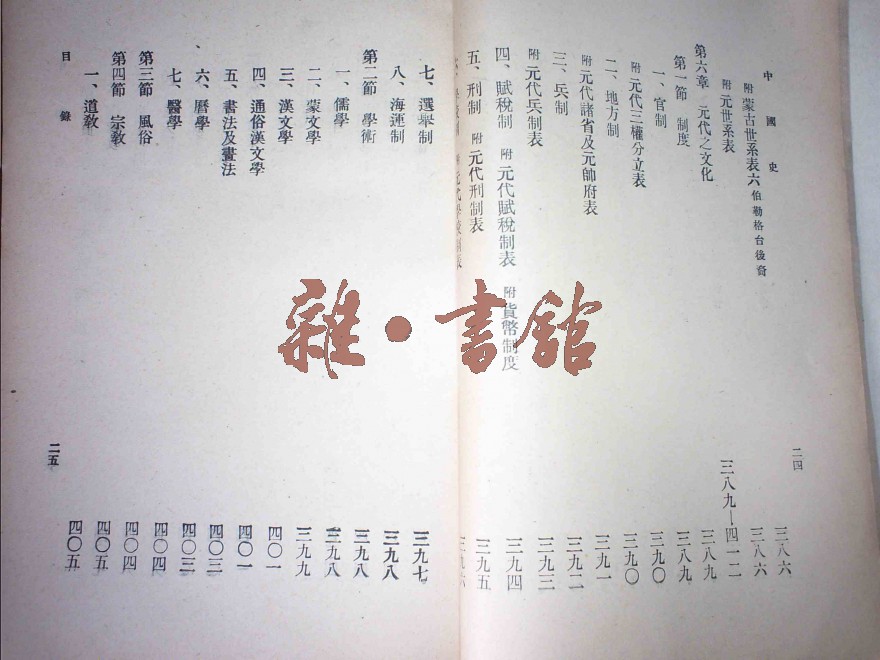 中國史
二四
附蒙古世系表六 伯勒格台後裔 三八六
附元世系表 三八六
第六章 元代之文化 三八九—四一二
第一節 制度 三八九
一、官制 三八九
附元代三權分立表 三九〇
二、地方制 三九〇
附元代諸省及元帥府表 三九一
三、兵制 三九二
附元代兵制表 三九三
四、賦稅制 附元代賦稅制表 附貨幣制度 三九四
五、刑制 附元代刑制表 三九五
附元代學校制表 三九六
七、選舉制 三九七
八、海運制 三九八
第二節 學術 三九八
一、儒學 三九八
二、蒙文學 三九九
三、漢文學 四〇一
四、通俗漢文學 四〇一
五、書法及畫法 四〇三
六、曆學 四〇三
七、醫學 四〇四
第三節 風俗 四〇四
第四節 宗教 四〇五
一、道教 四〇五
目錄
二五
雜·書館